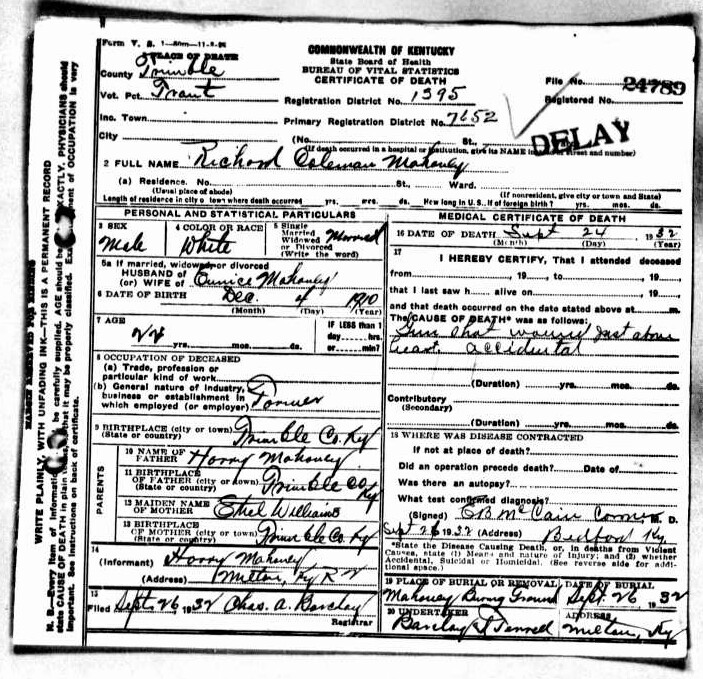 Form V. S. 1-50m-11-2-26
COMMONWEALTH OF KENTUCKY
State Board of Health
BUREAU OF VITAL STATISTICS
CERTIFICATE OF DEATH
PLACE OF DEATH
County Trimble
File No. 24789
Vot. Pct.
Registration District No. 1395
Registered No.
Inc. Town
Primary Registration District No. 7652
City (No. St.,
(If death occurred in a hospital or institution, give its NAME instead of street and number)
DELAY
2 FULL NAME Richard Coleman Mahoney
(a) Residence. No. St., Ward.
(Usual place of abode) (If nonresident, give city or town and State)
Length of residence in city or town where death occurred yrs. mos. ds. How long in U.S., if of foreign birth? yrs. mos. ds.
PERSONAL AND STATISTICAL PARTICULARS
3 SEX
Male
4 COLOR OR RACE
White
5 Single
Married
Widowed
or Divorced
(Write the word)
Married
5a If married, widowed, or divorced
HUSBAND of
(or) WIFE of Eunice Mahoney
6 DATE OF BIRTH Dec. 4 1910
(Month) (Day) (Year)
7 AGE
yrs. mos. ds.
IF LESS than 1
day hrs.
or min.?
8 OCCUPATION OF DECEASED
(a) Trade, profession or
particular kind of work
(b) General nature of industry,
business or establishment in
which employed (or employer) Farmer
9 BIRTHPLACE (city or town)
(State or country) Trimble Co. Ky
PARENTS
10 NAME OF
FATHER Harry Mahoney
11 BIRTHPLACE
OF FATHER (city or town)
(State or country) Trimble Co. Ky
12 MAIDEN NAME
OF MOTHER Ethel Williams
13 BIRTHPLACE
OF MOTHER (city or town)
(State or country) Trimble Co. Ky
14
(Informant) Harry Mahoney
(Address) Milton, Ky R
15
Filed Sept. 26 1932 Chas. A. Barclay
Registrar
MEDICAL CERTIFICATE OF DEATH
16 DATE OF DEATH Sept 24 1932
(Month) (Day) (Year)
17
I HEREBY CERTIFY, That I attended deceased
from , 19 , to , 19
that I last saw h alive on , 19
and that death occurred on the date stated above at m.
The CAUSE OF DEATH* was as follows:
Gun shot wound just above
heart. accidental
(Duration) yrs. mos. ds.
Contributory
(Secondary)
(Duration) yrs. mos. ds.
18 WHERE WAS DISEASE CONTRACTED
If not at place of death?
Did an operation precede death? Date of
Was there an autopsy?
What test confirmed diagnosis?
(Signed) McCain Coroner M. D.
Sept 26 1932 (Address) Bedford Ky.
*State the Disease Causing Death, or, in deaths from Violent
Causes, state (1) Means and nature of Injury; and (2) whether
Accidental, Suicidal or Homicidal. (See reverse side for addi-
tional space.)
19 PLACE OF BURIAL OR REMOVAL DATE OF BURIAL
Mahoney Ground Sept. 26 1932
20 UNDERTAKER ADDRESS
Barclay Milton, Ky
MARGIN RESERVED FOR BINDING
WRITE PLAINLY, WITH UNFADING INK—THIS IS A PERMANENT RECORD
N. B.—Every item of information be carefully supplied. AGE should be EXACTLY. PHYSICIANS should
state CAUSE OF DEATH in plain that it may be properly classified. of OCCUPATION is very
important. See instructions on back of certificate.